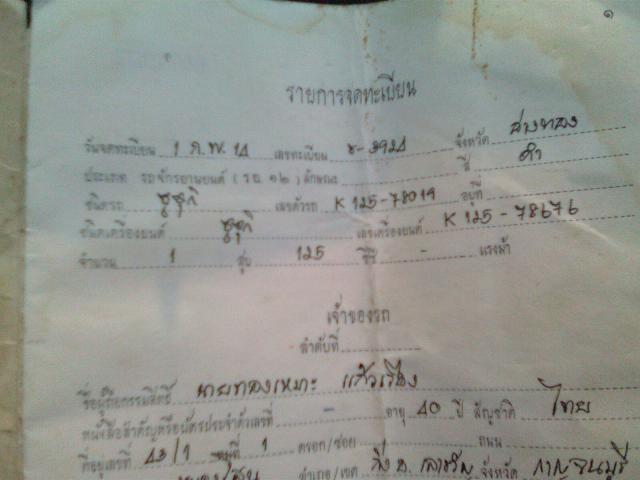 ๑
รายการจดทะเบียน
วันจดทะเบียน 1 ก.พ. 14 เลขทะเบียน จังหวัด อ่างทอง
ประเภท รถจักรยานยนต์ (รถ.๑๒) ลักษณะ สี ดำ
ชนิดรถ ซูซูกิ เลขตัวรถ K 125-78019 อยู่ที่
ชนิดเครื่องยนต์ ซูซูกิ เลขเครื่องยนต์ K 125-78676
จำนวน 1 สูบ 125 ซีซี - แรงม้า
เจ้าของรถ
ลำดับที่
ชื่อผู้ถือกรรมสิทธิ์ นายทองเหมาะ แก้วเรือง
หนังสือสำคัญหรือบัตรประจำตัวเลขที่ - อายุ 40 ปี สัญชาติ ไทย
ที่อยู่เลขที่ 43/1 หมู่ที่ 1 ตรอก/ซอย ถนน
อำเภอ/เขต กิ่ง อ. เลาขวัญ จังหวัด กาญจนบุรี